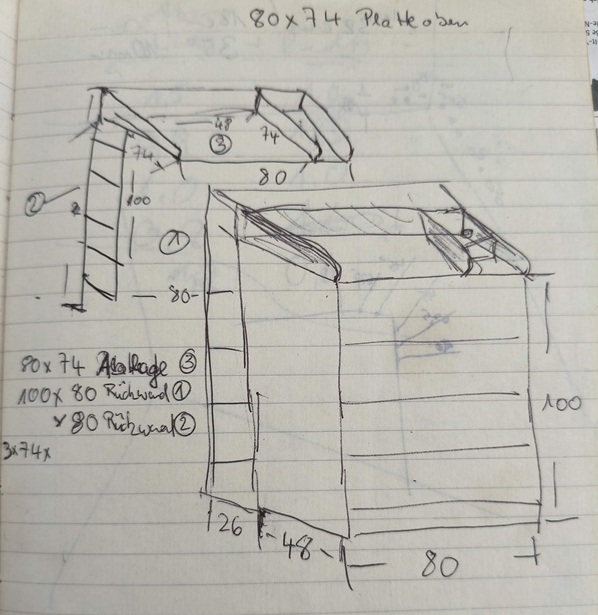 80x74 Platte oben
48
74
③
74
80
②
100
①
80
80x74 Ablage ③
100x80 Rückwand ①
x80 Rückwand ②
3x74x
100
26
48
80